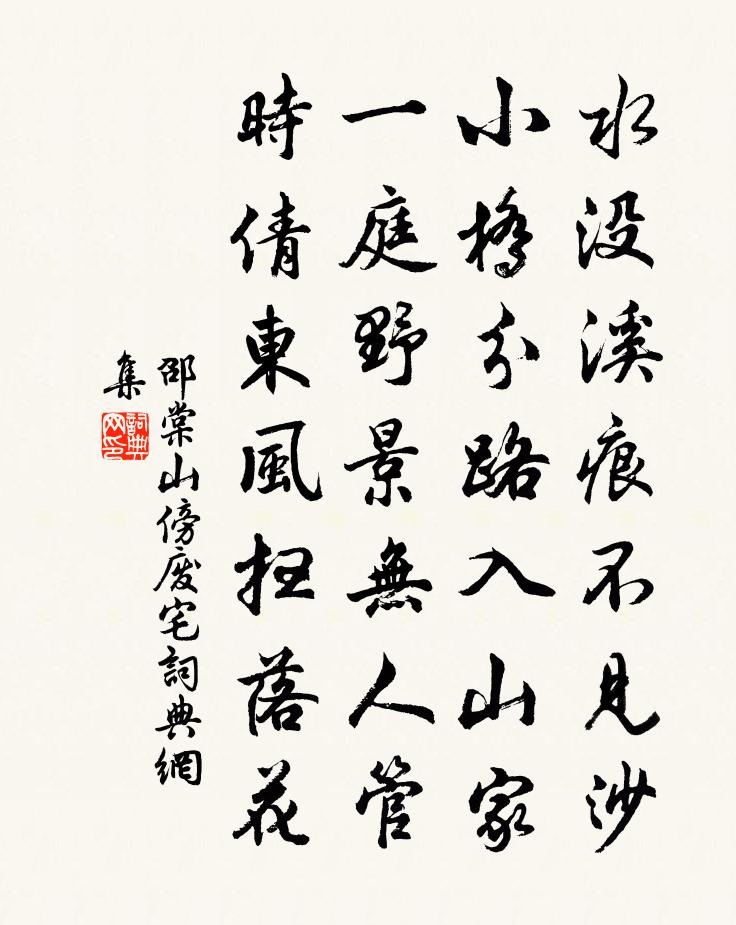 水没溪痕不見沙
小橋分路入山家
一庭野景無人管
時倩東風掃落花
邵棠山傍廢宅詞典網
集
詞典
網印